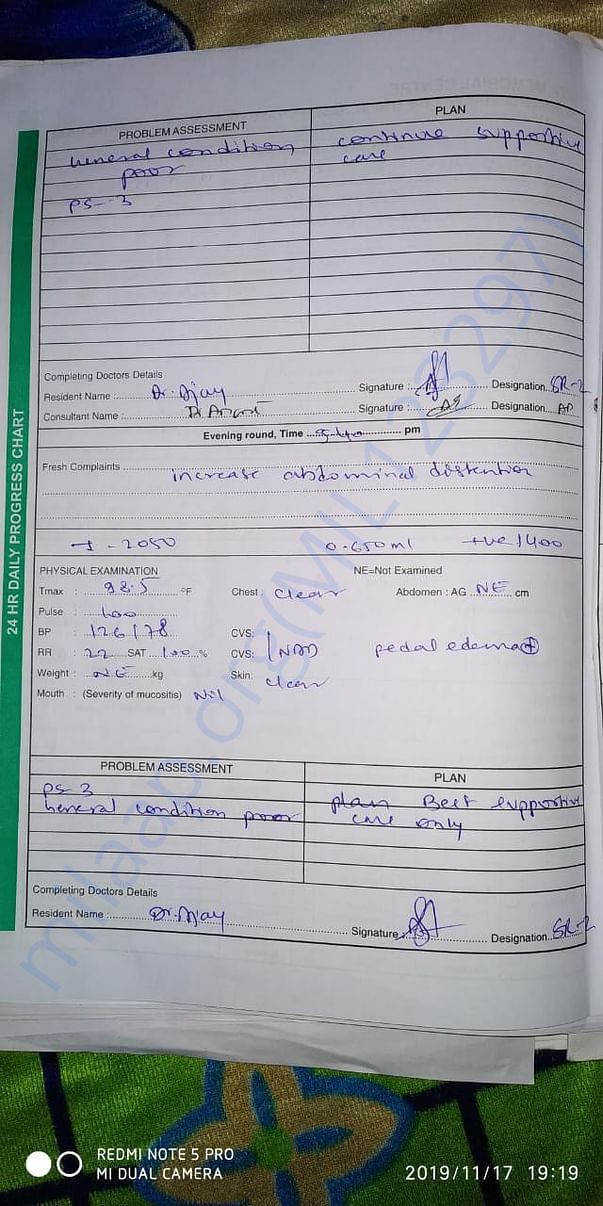 PROBLEM ASSESSMENT PLAN
General condition continue supportive
poor care
PS-3
Completing Doctors Details
Resident Name : Dr. Ajay Signature : Designation SR-2
Consultant Name : Signature : Designation AP
Evening round, Time pm
Fresh Complaints increase abdominal distention
I - 2050 O-650ml +ve 1400
PHYSICAL EXAMINATION NE=Not Examined
Tmax : 98.5 °F Chest : Clear Abdomen : AG NE cm
Pulse : 100
BP : 126/78 CVS:
RR : 22 SAT 100 % CVS: NAD pedal edema +
Weight : NE kg Skin: clear
Mouth : (Severity of mucositis) Nil
PROBLEM ASSESSMENT PLAN
PS-3 plan Best supportive
General condition poor care only
Completing Doctors Details
Resident Name : Dr. Ajay Signature : Designation SR-2
24 HR DAILY PROGRESS CHART
milaap.org(MIL123297)
REDMI NOTE 5 PRO
MI DUAL CAMERA 2019/11/17 19:19